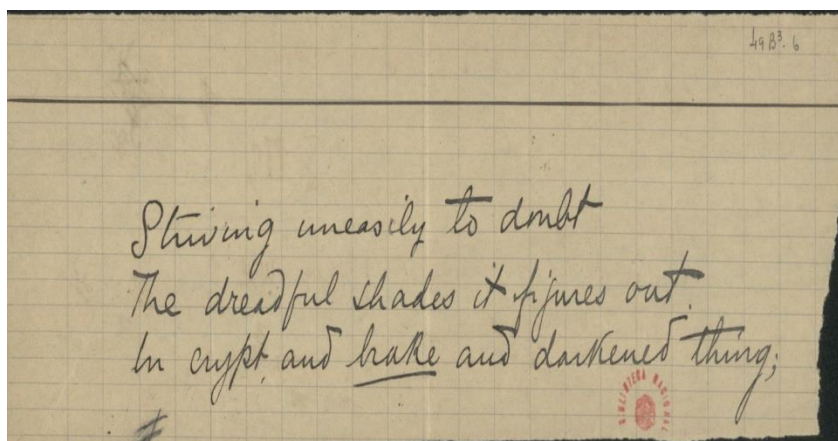 49B³.6
Striving uneasily to doubt
The dreadful shades it figures out.
In crypt, and brake and darkened thing;
BIBLIOTECA NACIONAL